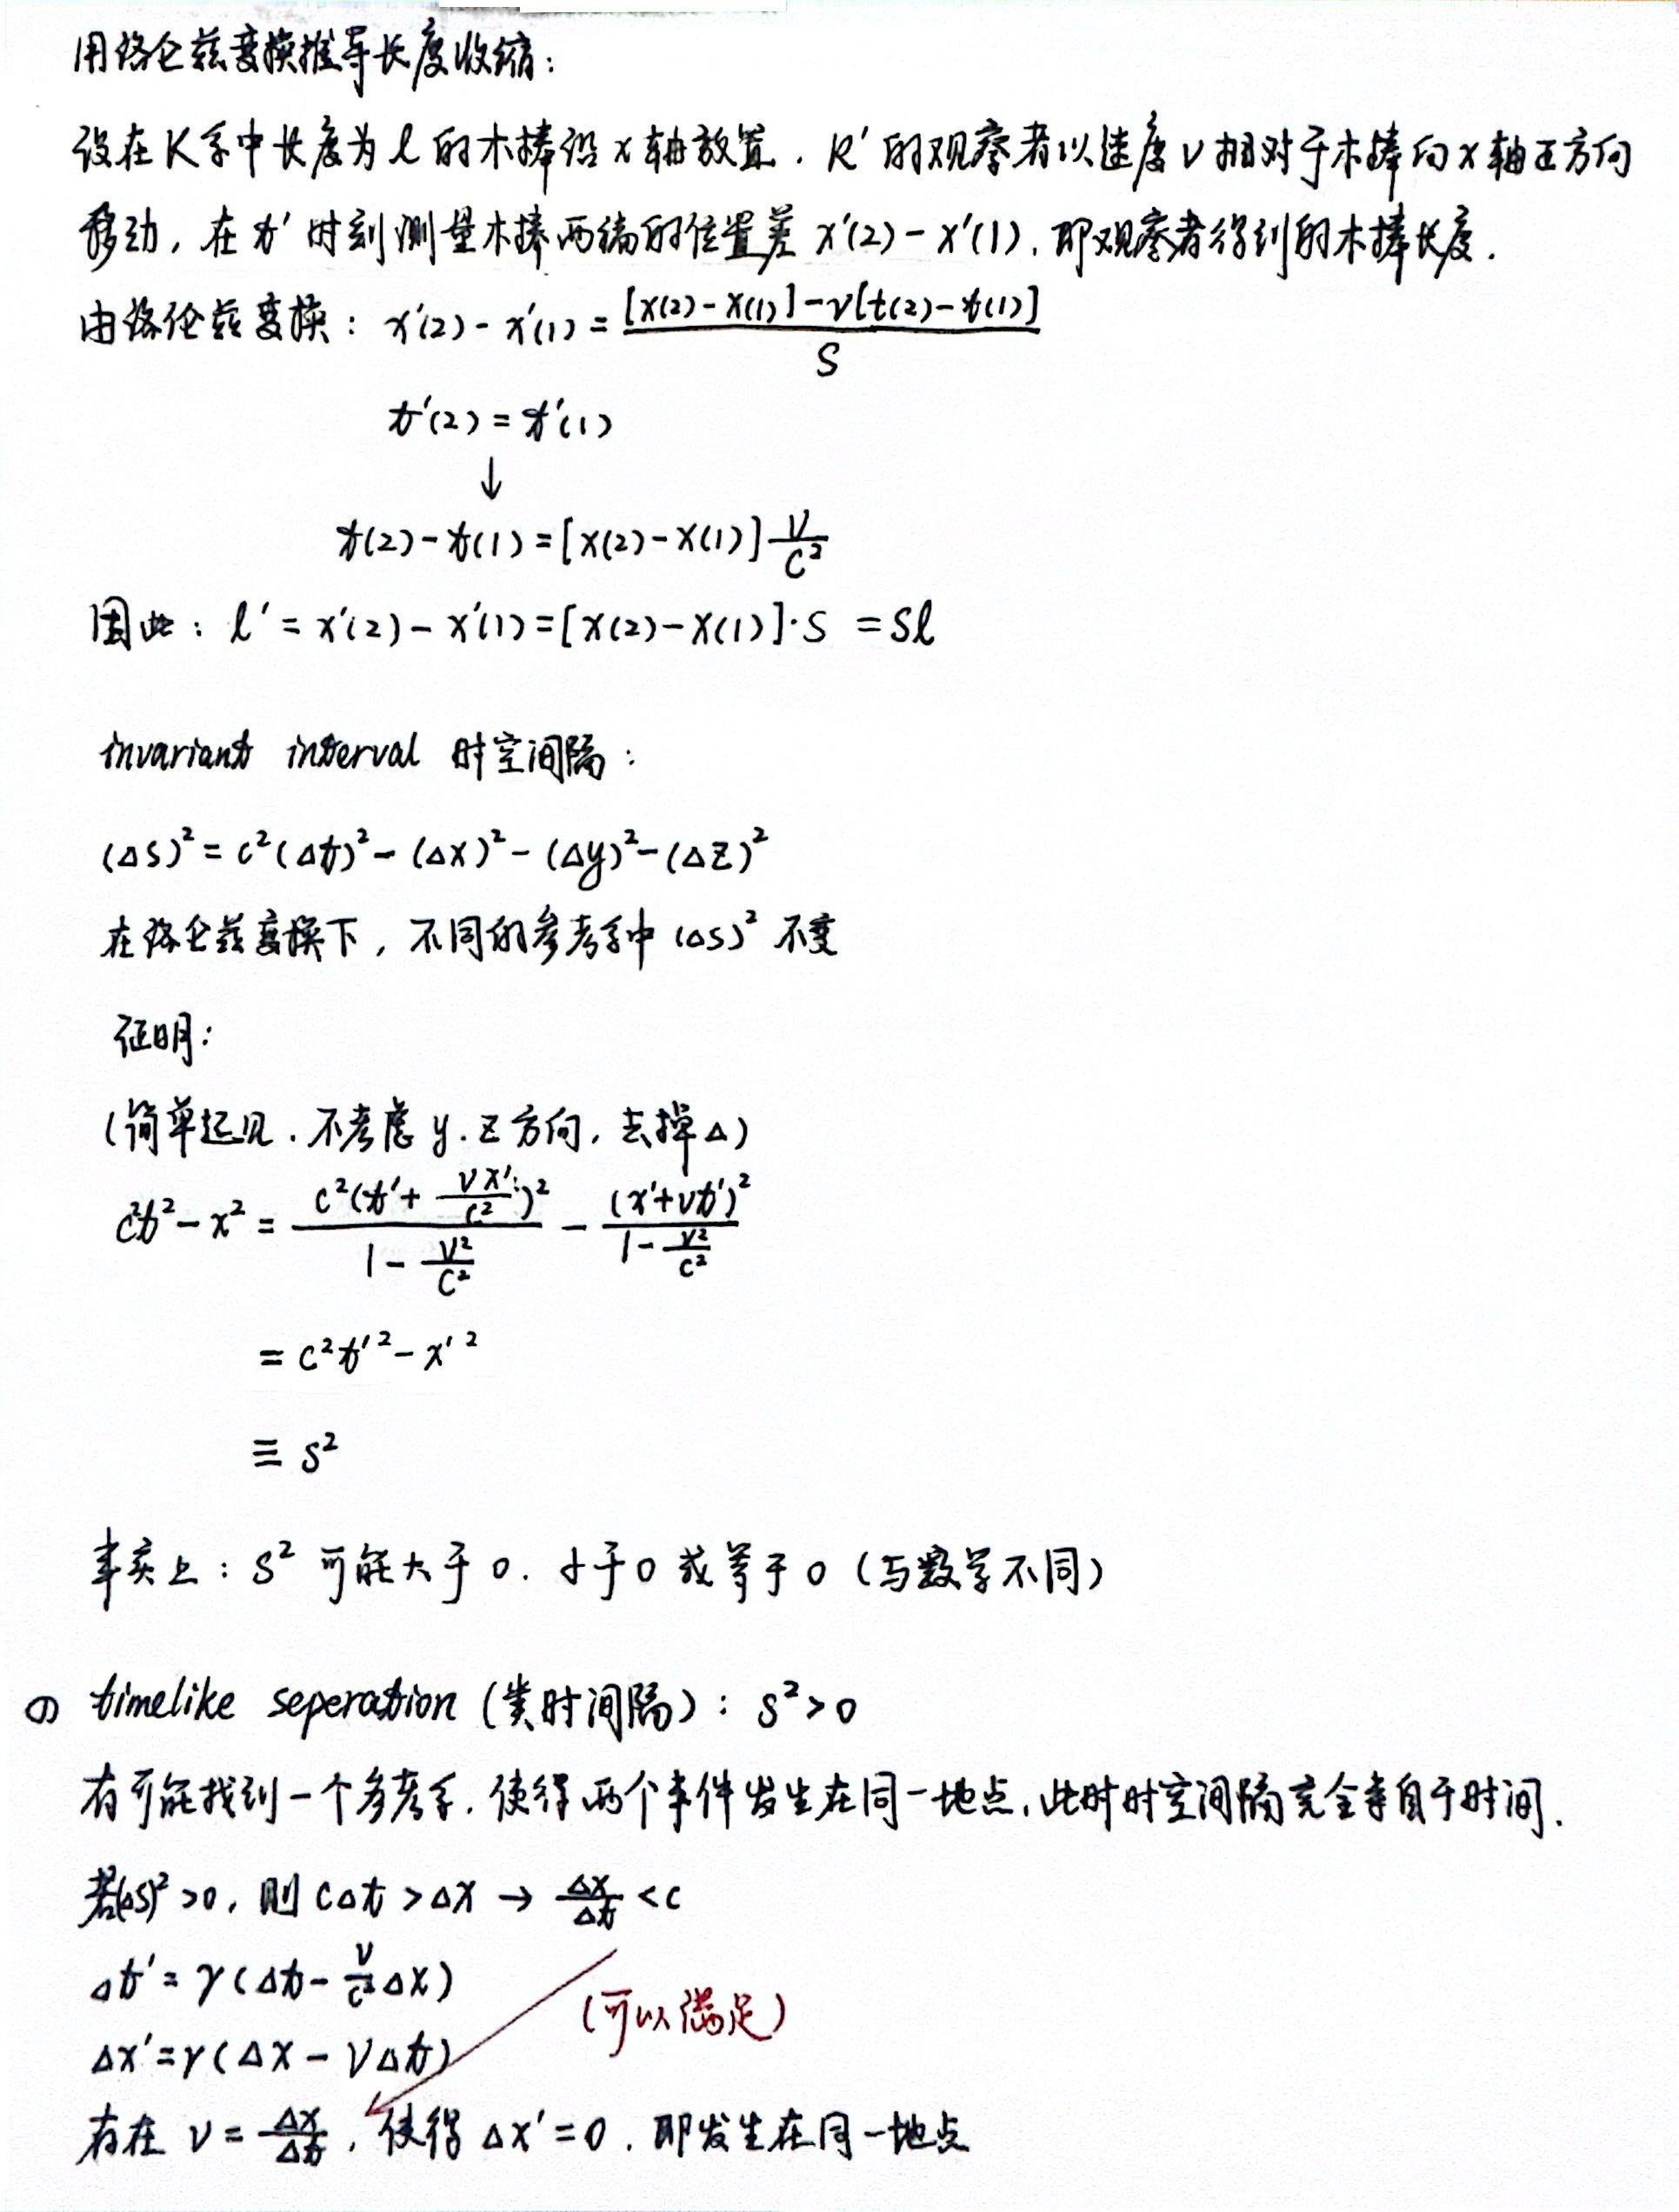 用洛仑兹变换推导长度收缩：
设在K系中长度为l的木棒沿x轴放置．K′的观察者以速度v相对于木棒向x轴正方向
移动，在t′时刻测量木棒两端的位置差 x′(2)-x′(1)，即观察者得到的木棒长度．
由洛伦兹变换：x′(2)-x′(1)=\frac{[x(2)-x(1)]-v[t(2)-t(1)]}{S}
t′(2)=t′(1)
↓
t(2)-t(1)=[x(2)-x(1)]\frac{v}{c²}
因此：l′=x′(2)-x′(1)=[x(2)-x(1)]·S =Sl
invariant interval 时空间隔：
(Δs)²=c²(Δt)²-(Δx)²-(Δy)²-(Δz)²
在洛仑兹变换下，不同的参考系中 (Δs)² 不变
证明：
(简单起见．不考虑y．z方向，去掉Δ)
c²t²-x²=\frac{c²(t′+\frac{vx′}{c²})²}{1-\frac{v²}{c²}}-\frac{(x′+vt′)²}{1-\frac{v²}{c²}}
=c²t′²-x′²
≡ s²
事实上：s² 可能大于0．小于0或等于0（与数学不同）
① timelike seperation (类时间隔)：s²>0
有可能找到一个参考系．使得两个事件发生在同一地点，此时时空间隔完全来自于时间．
若(Δs)²>0，则 cΔt>Δx → \frac{Δx}{Δt}<c
Δt′=γ(Δt-\frac{v}{c²}Δx)
(可以满足)
Δx′=γ(Δx-vΔt)
存在 v=\frac{Δx}{Δt}，使得 Δx′=0．即发生在同一地点